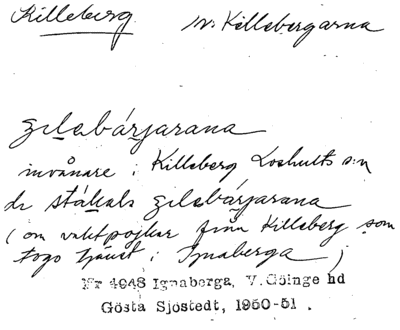 Killeberg nr. Killebergarna
zɪlabárjarana
invånare i Killeberg Loshults s:n
di stákals zɪlabárjarana
(om vallpojkar från Killeberg som
togo tjänst i Ignaberga)
Nr 4048 Ignaberga, V.Göinge hd
Gösta Sjöstedt, 1950-51 .